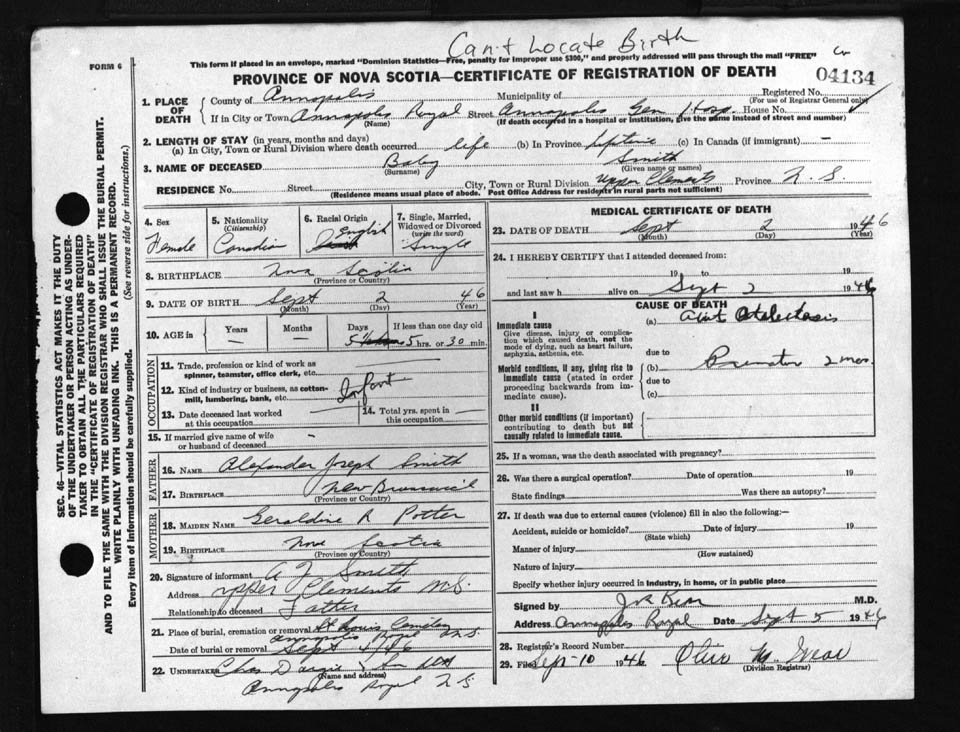 Can't Locate Birth
FORM 6
This form if placed in an envelope, marked "Dominion Statistics—Free, penalty for improper use $300," and properly addressed will pass through the mail "FREE"
PROVINCE OF NOVA SCOTIA—CERTIFICATE OF REGISTRATION OF DEATH
04134
1. PLACE OF DEATH
County of Annapolis Municipality of Registered No.
(For use of Registrar General only)
If in City or Town Annapolis Royal Street Annapolis Gen. Hosp. House No.
(Name) (If death occurred in a hospital or institution, give the name instead of street and number)
2. LENGTH OF STAY (in years, months and days)
(a) In City, Town or Rural Division where death occurred life (b) In Province lifetime (c) In Canada (if immigrant) —
3. NAME OF DECEASED Baby Smith
(Surname) (Given name or names)
RESIDENCE No. Street City, Town or Rural Division Upper Clements Province N.S.
(Residence means usual place of abode. Post Office Address for residents in rural parts not sufficient)
4. Sex
Female
5. Nationality
(Citizenship)
Canadian
6. Racial Origin
English
7. Single, Married, Widowed or Divorced
(write the word)
Single
8. BIRTHPLACE Nova Scotia
(Province or Country)
9. DATE OF BIRTH Sept 2 46
(Month) (Day) (Year)
10. AGE in Years Months Days If less than one day old
— — 5 hrs. or 30 min.
OCCUPATION
11. Trade, profession or kind of work as spinner, teamster, office clerk, etc.
12. Kind of industry or business, as cotton-mill, lumbering, bank, etc. Infant
13. Date deceased last worked at this occupation
14. Total yrs. spent in this occupation —
15. If married give name of wife or husband of deceased —
FATHER
16. NAME Alexander Joseph Smith
17. BIRTHPLACE New Brunswick
(Province or Country)
MOTHER
18. MAIDEN NAME Geraldine R Potter
19. BIRTHPLACE Nova Scotia
(Province or Country)
20. Signature of informant A J Smith
Address Upper Clements N.S.
Relationship to deceased Father
21. Place of burial, cremation or removal St Louis Cemetery
Annapolis Royal N.S.
Date of burial or removal Sept 4/46
22. UNDERTAKER Chas Dargie & Son Ltd
(Name and address)
Annapolis Royal N S
MEDICAL CERTIFICATE OF DEATH
23. DATE OF DEATH Sept 2 1946
(Month) (Day) (Year)
24. I HEREBY CERTIFY that I attended deceased from:
19 to 19
and last saw h alive on Sept 2 1946
CAUSE OF DEATH
I
Immediate cause
Give disease, injury or complication which caused death, not the mode of dying, such as heart failure, asphyxia, asthenia, etc.
(a) Atelectasis
due to
Morbid conditions, if any, giving rise to immediate cause (stated in order proceeding backwards from immediate cause).
(b) 2 mos.
due to
(c)
II
Other morbid conditions (if important) contributing to death but not causally related to immediate cause.
25. If a woman, was the death associated with pregnancy?
26. Was there a surgical operation? Date of operation 19
State findings Was there an autopsy?
27. If death was due to external causes (violence) fill in also the following:—
Accident, suicide or homicide? Date of injury 19
(State which)
Manner of injury
(How sustained)
Nature of injury
Specify whether injury occurred in industry, in home, or in public place
Signed by M.D.
Address Annapolis Royal Date Sept 5 1946
28. Registrar's Record Number
29. Filed Sep-10 1946
(Division Registrar)
SEC. 46—VITAL STATISTICS ACT MAKES IT THE DUTY OF THE UNDERTAKER OR PERSON ACTING AS UNDERTAKER TO OBTAIN ALL THE PARTICULARS REQUIRED IN THE "CERTIFICATE OF REGISTRATION OF DEATH" AND TO FILE THE SAME WITH THE DIVISION REGISTRAR WHO SHALL ISSUE THE BURIAL PERMIT.
WRITE PLAINLY WITH UNFADING INK. THIS IS A PERMANENT RECORD.
Every item of information should be carefully supplied. (See reverse side for instructions.)